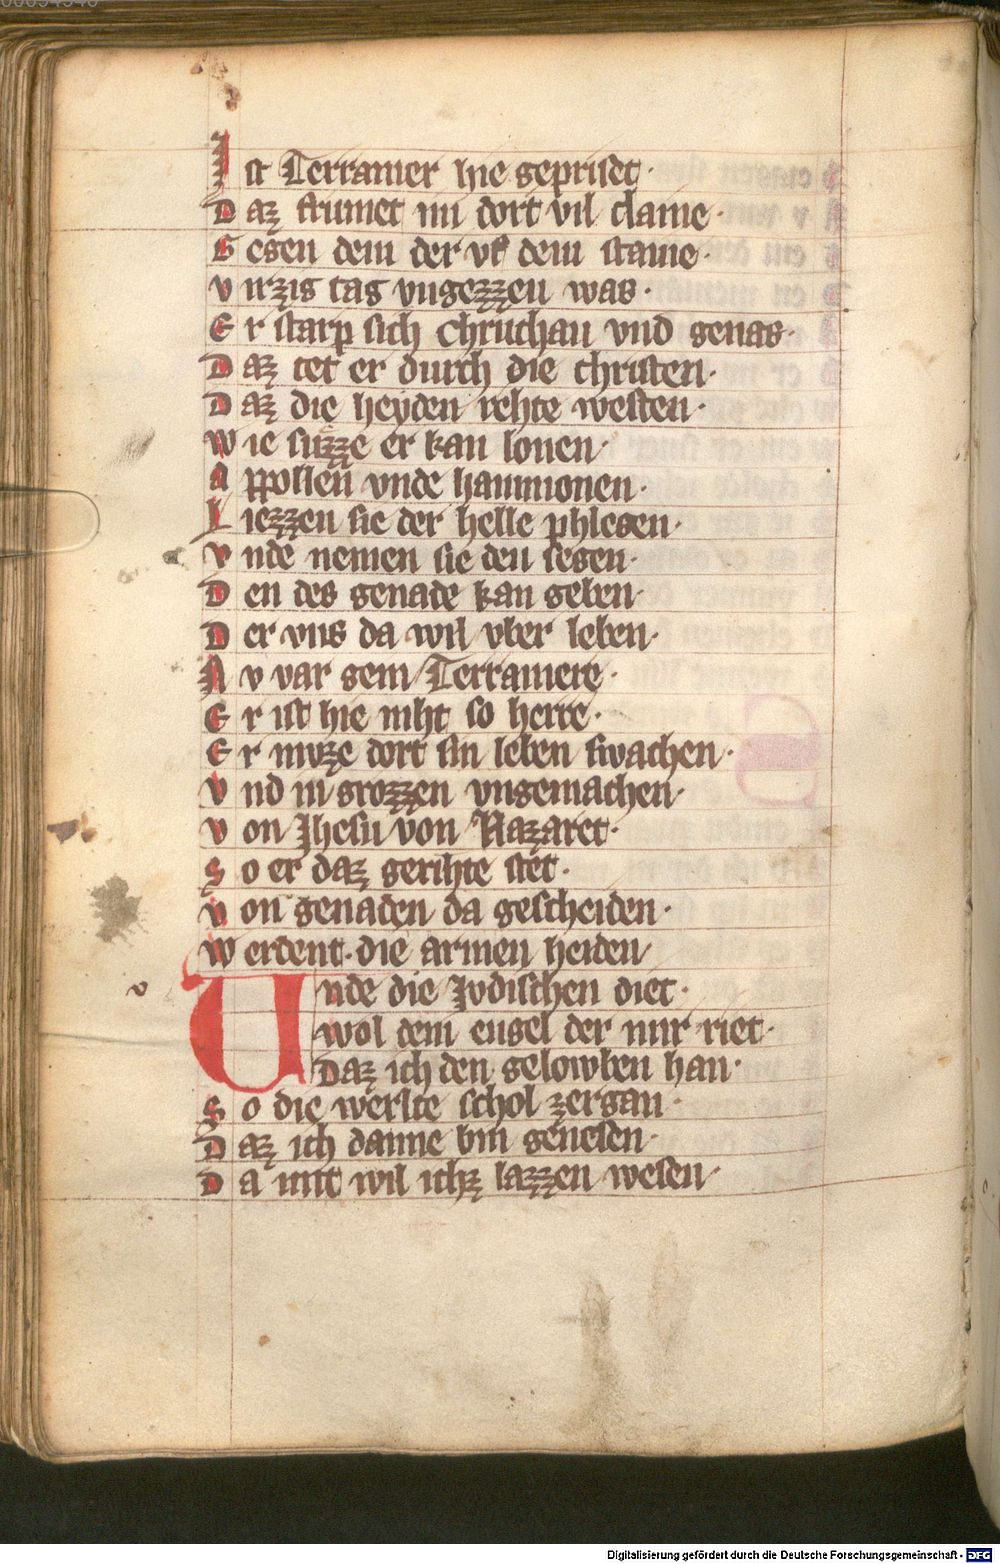 Ist Terramer hie gepriset·
Daz frumet im dort vil claine·
Gegen dem der vf dem staine·
virzig tag vngezzen was·
Er starp sich chruchan vnd genas·
Daz tet er durch die christen·
Daz die heyden rehte westen·
wie suzze er kan lonen·
Appollen vnde hammonen·
Liezzen sie der helle phlegen·
vnde nemen sie den segen·
Den des genade kan geben·
Der vns da wil vber leben·
Nv var gein Terramere·
Er ist hie niht so herre·
Er muze dort sin leben swachen·
vnd in grozzen vngemachen·
von Jhesu von Nazaret·
So er daz gerihte stet·
von genaden da gescheiden·
werdent·die armen heiden
v
Unde die Jvdischen diet·
wol dem engel der mir riet·
Daz ich den gelowben han·
So die werlte schol zergan·
Daz ich danne bin genesen·
Da mit wil ichz lazzen wesen·
Digitalisierung gefördert durch die Deutsche Forschungsgemeinschaft - DFG